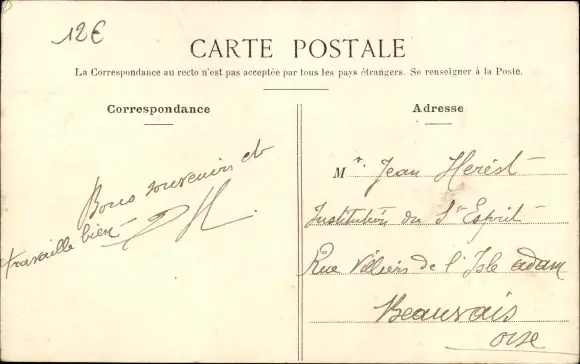 12€
CARTE POSTALE
La Correspondance au recto n'est pas acceptée par tous les pays étrangers. Se renseigner à la Poste.
Correspondance
Bons souvenirs et
travaille bien
Adresse
Mr. Jean Herest
Institution du St Esprit
Rue Villiers de l'Isle adam
Beauvais
oise